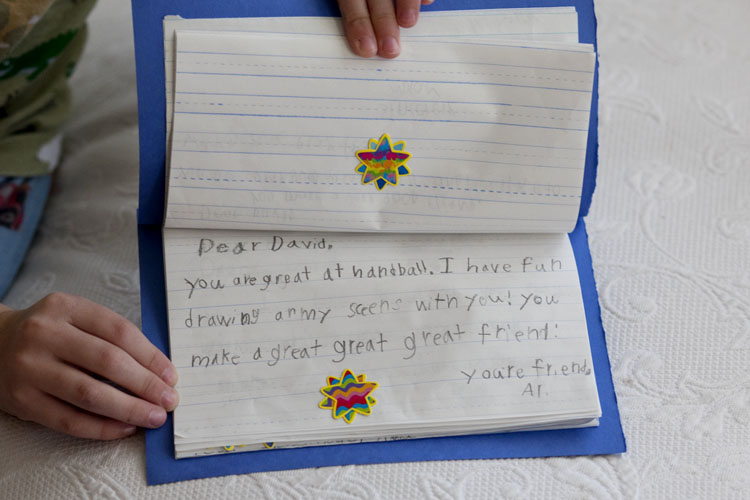 Dear David,
you are great at handball. I have fun
drawing army scens with you! you
make a great great great friend!
youre friend,
Al.